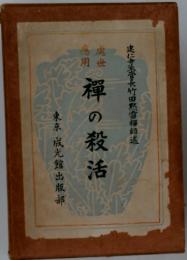 建仁寺管長竹田黙雷禅師述
處世
應用
禪の殺活
東京 成光館出版部